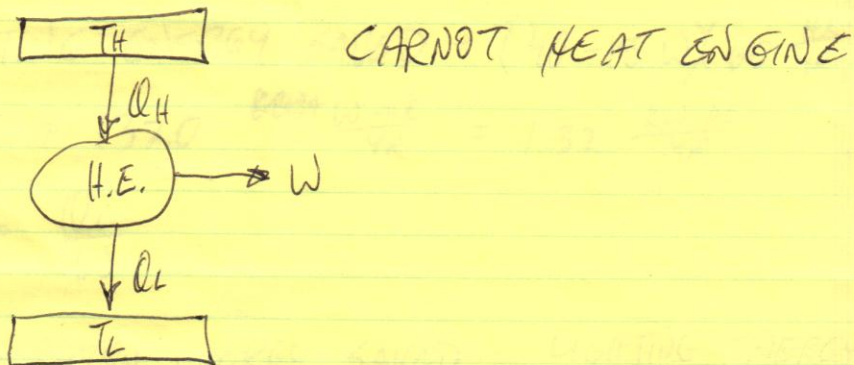 TH
CARNOT HEAT ENGINE
QH
H.E.
W
QL
TL